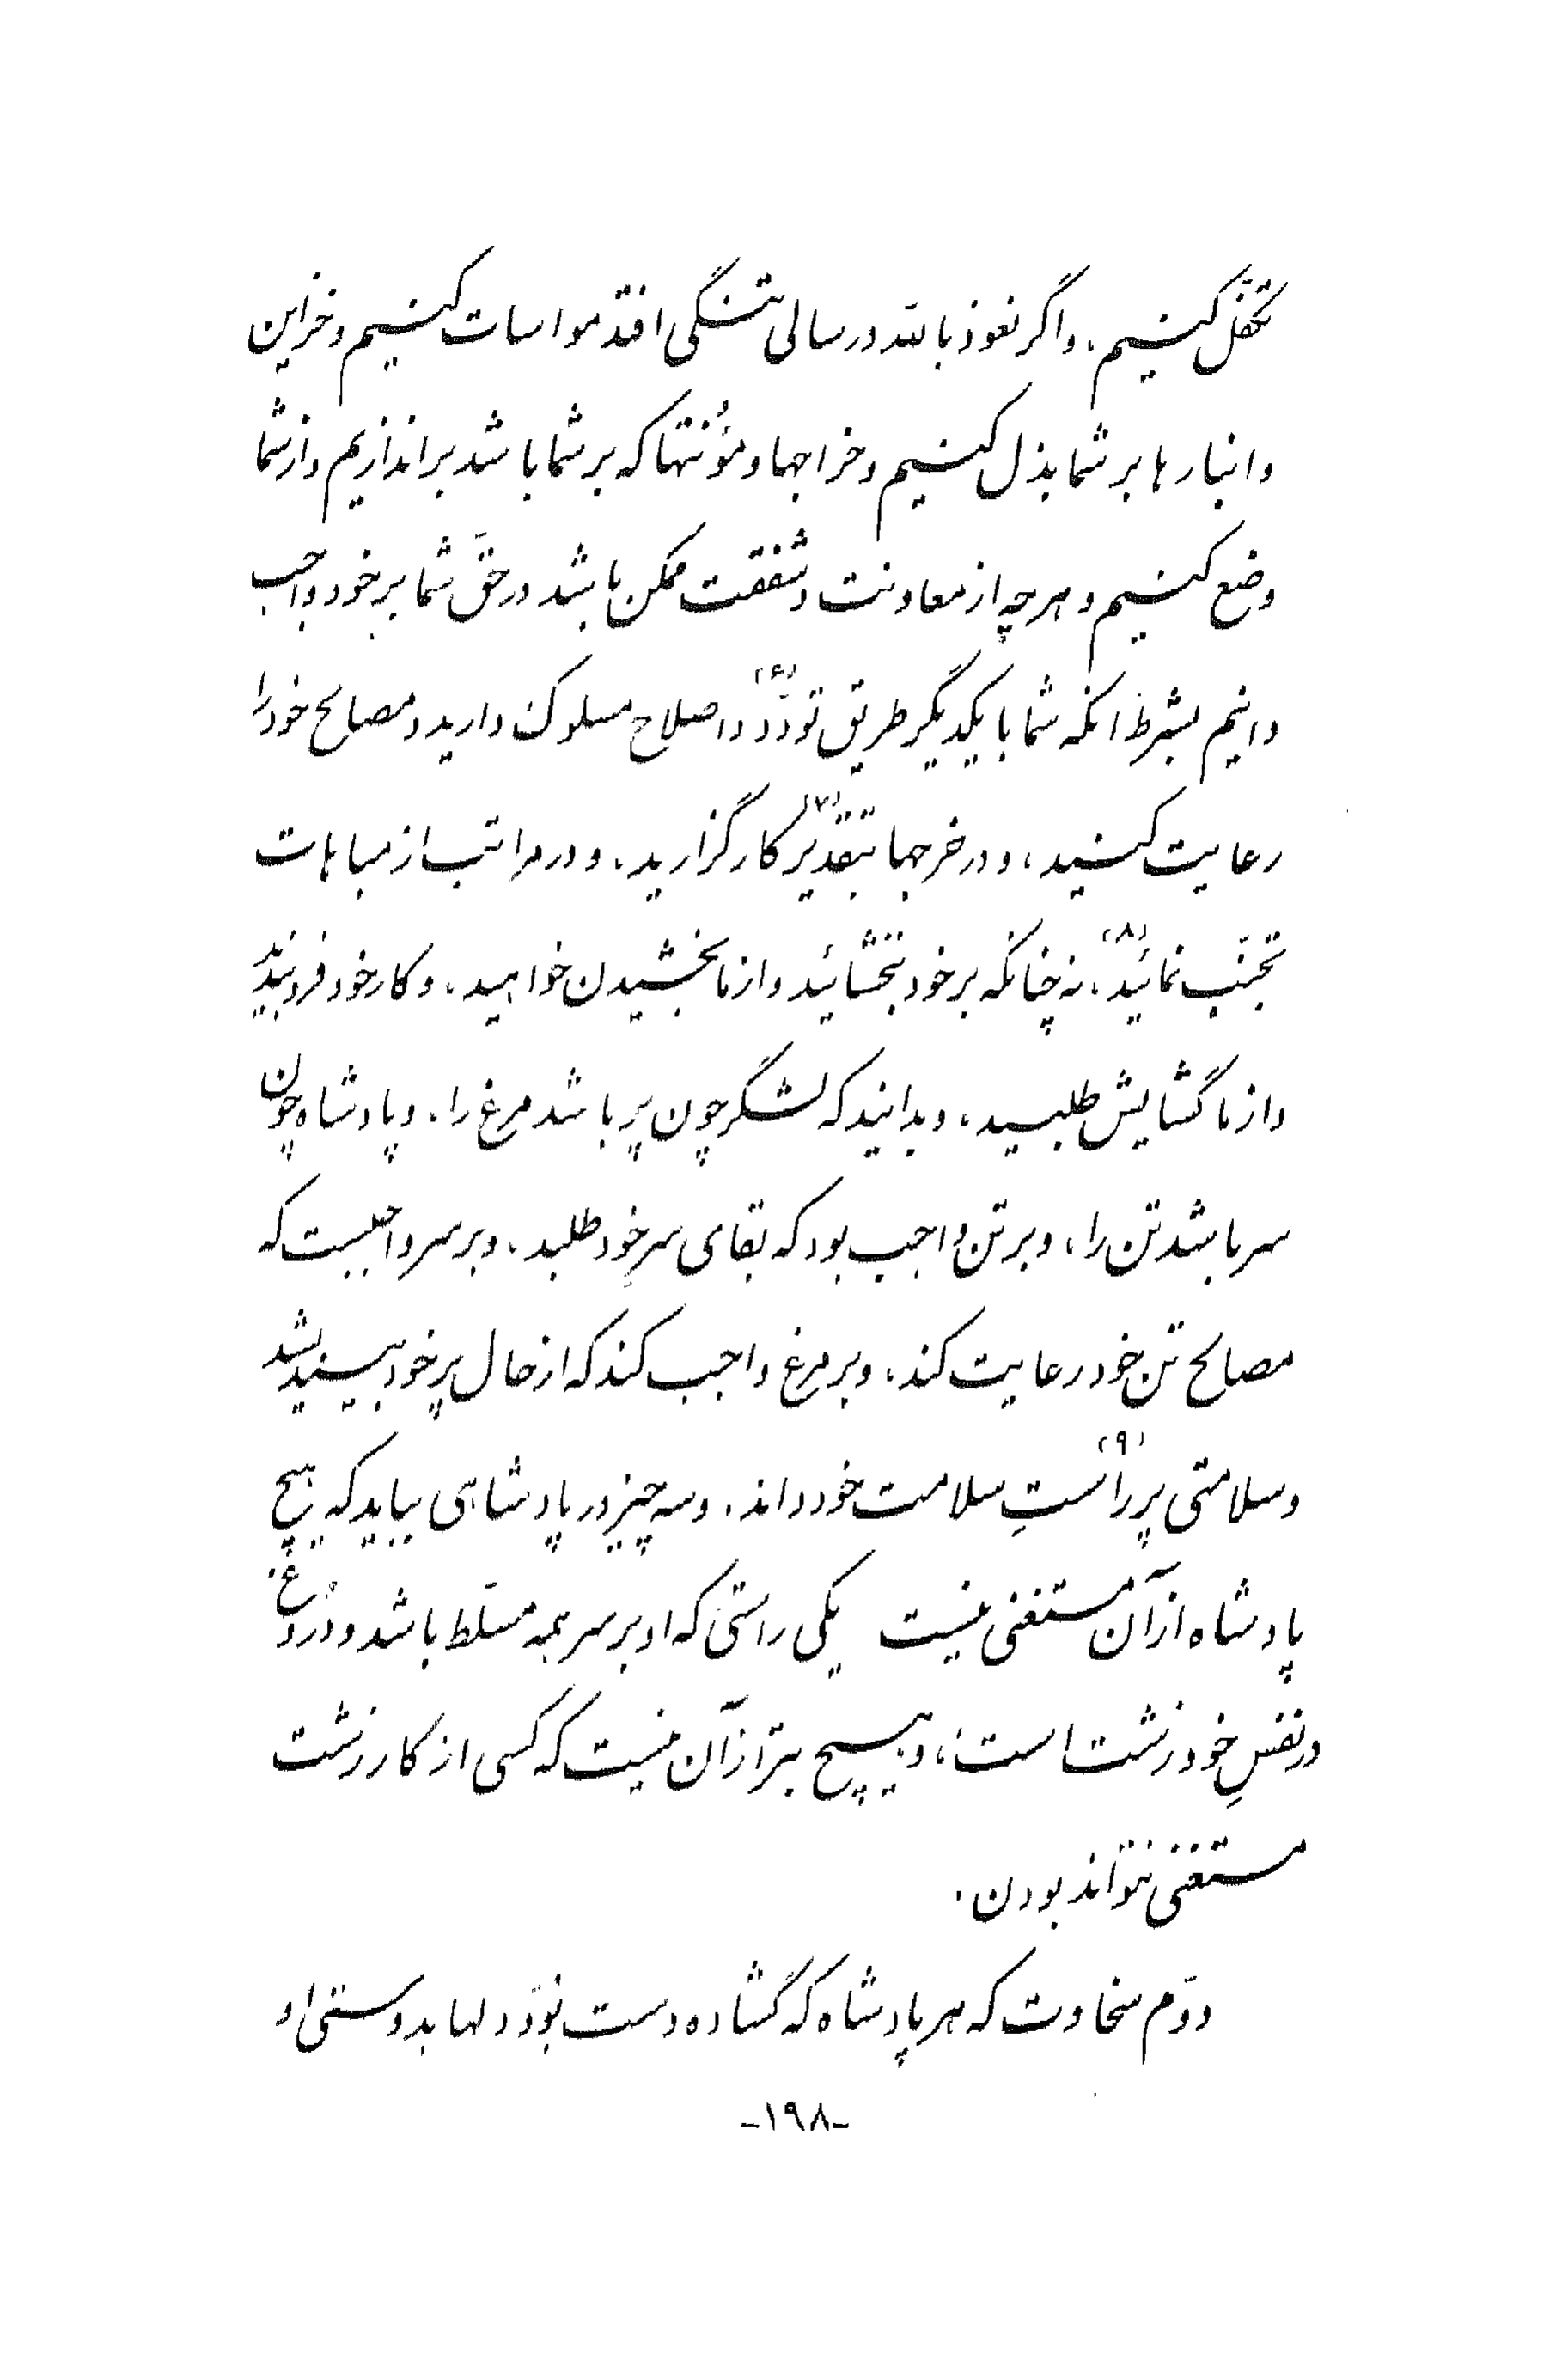 تحفّل کنیم، و اگر نعوذ بالله در سالی تنگی افتد مواسات کنیم و خزاین
و انبارها بر شما بذل کنیم و خراجها و مؤنتها که بر شما باشد براندازیم و از شما
وضع کنیم و هرچه از معاونت و شفقت ممکن باشد در حقّ شما بر خود واجب
دانیم بشرط انکه شما با یکدیگر طریق تودّد (۶) و اصلاح مسلوک دارید و مصالح خود را
رعایت کنید، و در خرجها بتقدیر (۷) کار گزارید، و در مراتب از مباهات
تجنّب نمائید (۸)، نه چنانکه بر خود نبخشائید و از ما بخشیدن خواهید، و کار خود فرو بندید
و از ما گشایش طلبید، و بدانید که لشگر چون پر باشد مرغ را، و پادشاه چون
سر باشد تن را، و بر تن واجب بود که بقای سرِ خود طلبد، و بر سر واجبست که
مصالح تن خود رعایت کند، و بر مرغ واجب کند که از حال پرِ خود بیندیشد
و سلامتی پر راست (۹) سلامت خود داند، و سه چیز در پادشاهی بباید که هیچ
پادشاه از آن مستغنی نیست یکی راستی که او بر سر همه مسلّط باشد و دروغ
در نفسِ خود زشت است، و هیچ بتر از آن نیست که کسی از کار زشت
مستغنی نتواند بودن.
دوّم سخاوت که هر پادشاه که گشاده دست بوَد دلها بدوستی او
-۱۹۸-